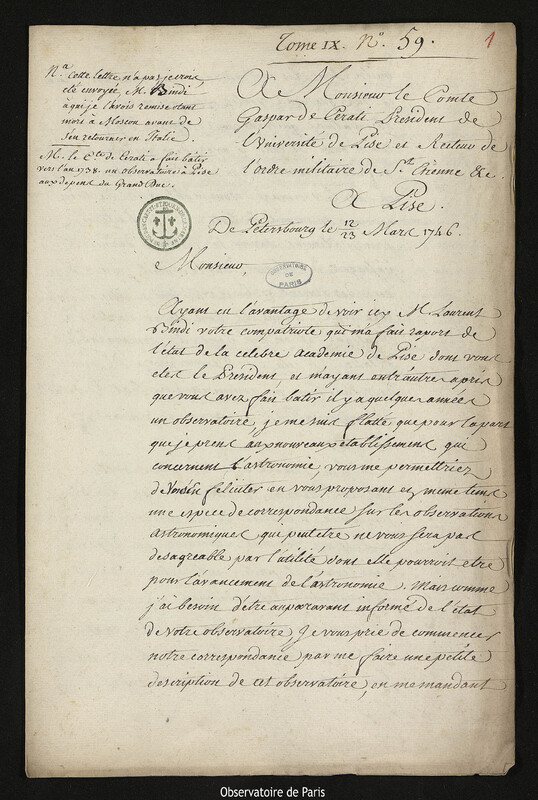 Tome IX. N.º 59.
1
N.ª Cette lettre n'a pas je crois
été envoyée, M. Bindi
a qui je l'avois remise étant
mort à Moscou avant de
s'en retourner en Italie.
M. le C.te de Cerati a fait bâtir
vers l'an 1738. un observatoire à Pise
aux depens du Grand Duc.
A Monsieur le Comte
Gaspar de Cerati President de
l'Université de Pise et Recteur de
l'ordre militaire de S.t Etienne &c.
A Pise.
De Petersbourg le 12/23 Mars 1746.
Monsieur,
OBSERVATOIRE
DE
PARIS
Ayant eu l'avantage de voir icy M. Laurent
Bindi votre compatriote qui m'a fait raport de
l'état de la celebre academie de Pise dont vous
etes le President, et m'ayant entr'autre apris
que vous avez fait batir il y a quelques années
un observatoire, je me suis flatté que pour la part
que je prens aux nouveaux établissement qui
concernent l'astronomie, vous me permettriez
de vous en feliciter en vous proposant en meme tems
une espece de correspondance sur les observations
astronomiques qui peut etre ne vous sera pas
desagreable par l'utilité dont elle pourroit etre
pour l'avancement de l'astronomie. Mais comme
j'ai besoin d'être auparavant informé de l'état
de votre observatoire, Je vous prie de commencer
notre correspondance par me faire une petite
description de cet observatoire, en me mandant
Observatoire de Paris